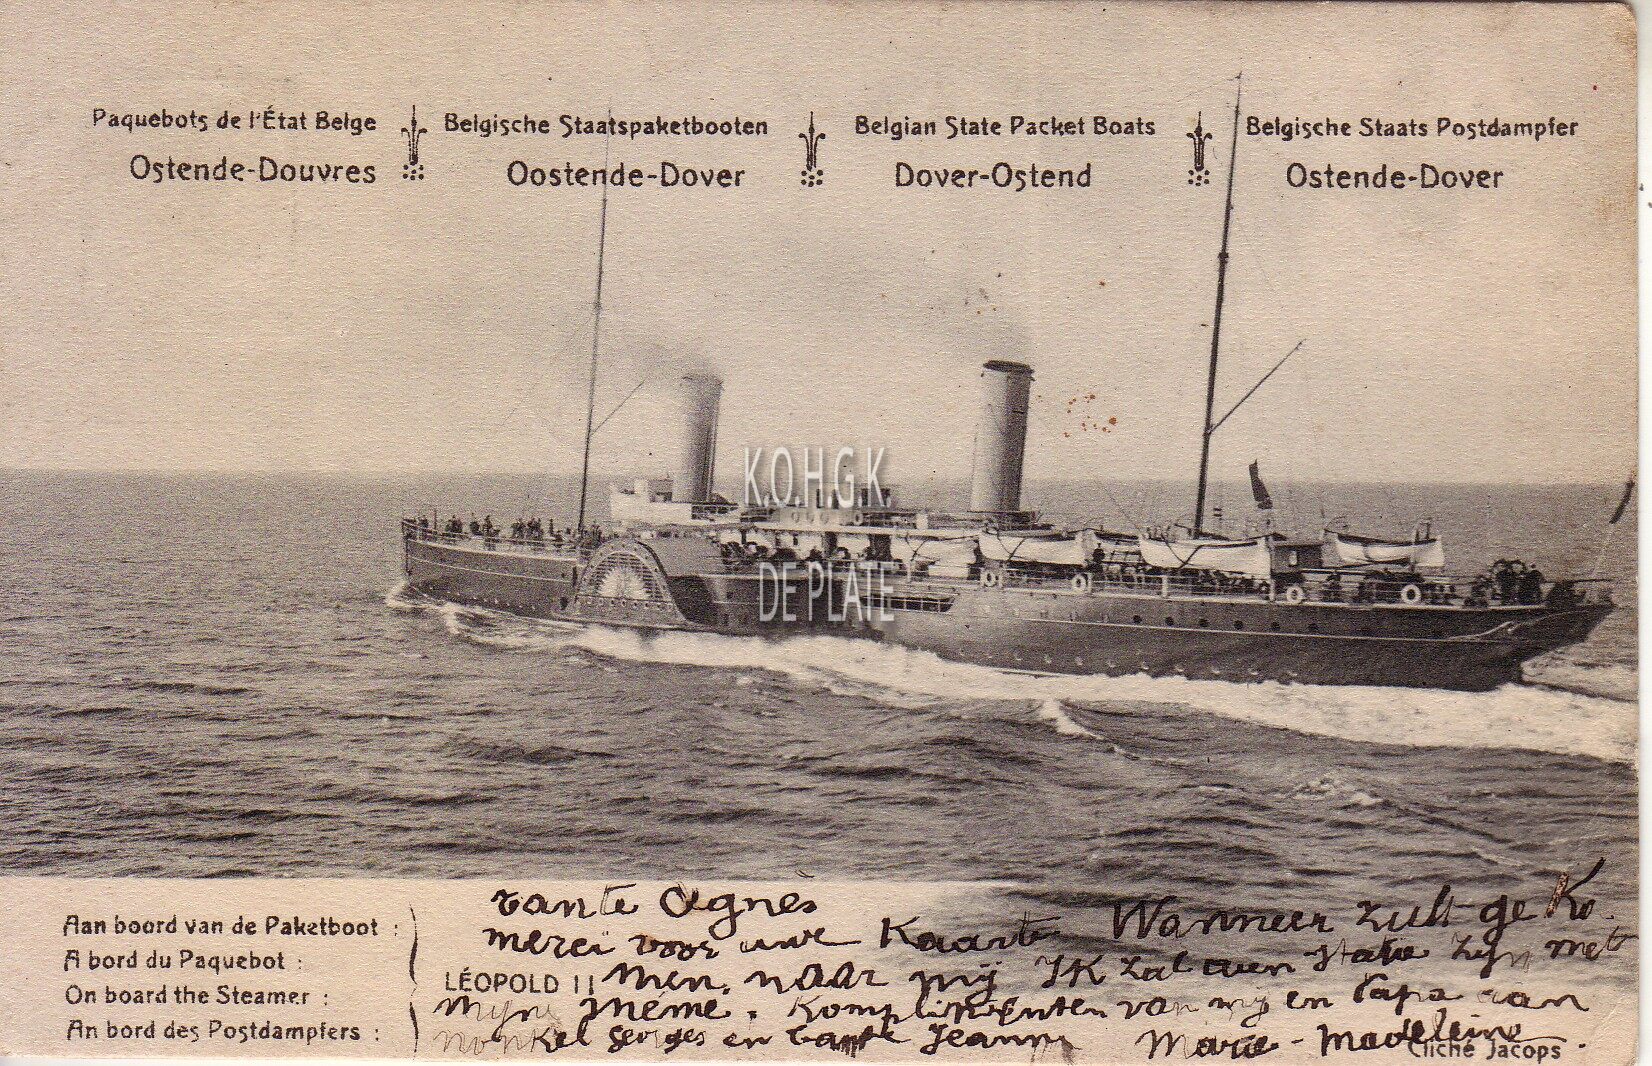 Paquebots de l'État Belge
Ostende-Douvres
Belgische Staatspaketbooten
Oostende-Dover
Belgian State Packet Boats
Dover-Ostend
Belgische Staats Postdampfer
Ostende-Dover
K.O.H.G.K.
DE PLATE
Aan boord van de Paketboot :
A bord du Paquebot :
On board the Steamer :
An bord des Postdampfers :
LÉOPOLD II
tante Agnès
merci voor uwe Kaart Wanneer zult ge Ko.
men naar mij Ik zal zijn met
mijne mémé. Komplimenten van mij en Papa aan
nonkel Georges en tante Jeanne Marie-Madeleine
Cliché Jacops.